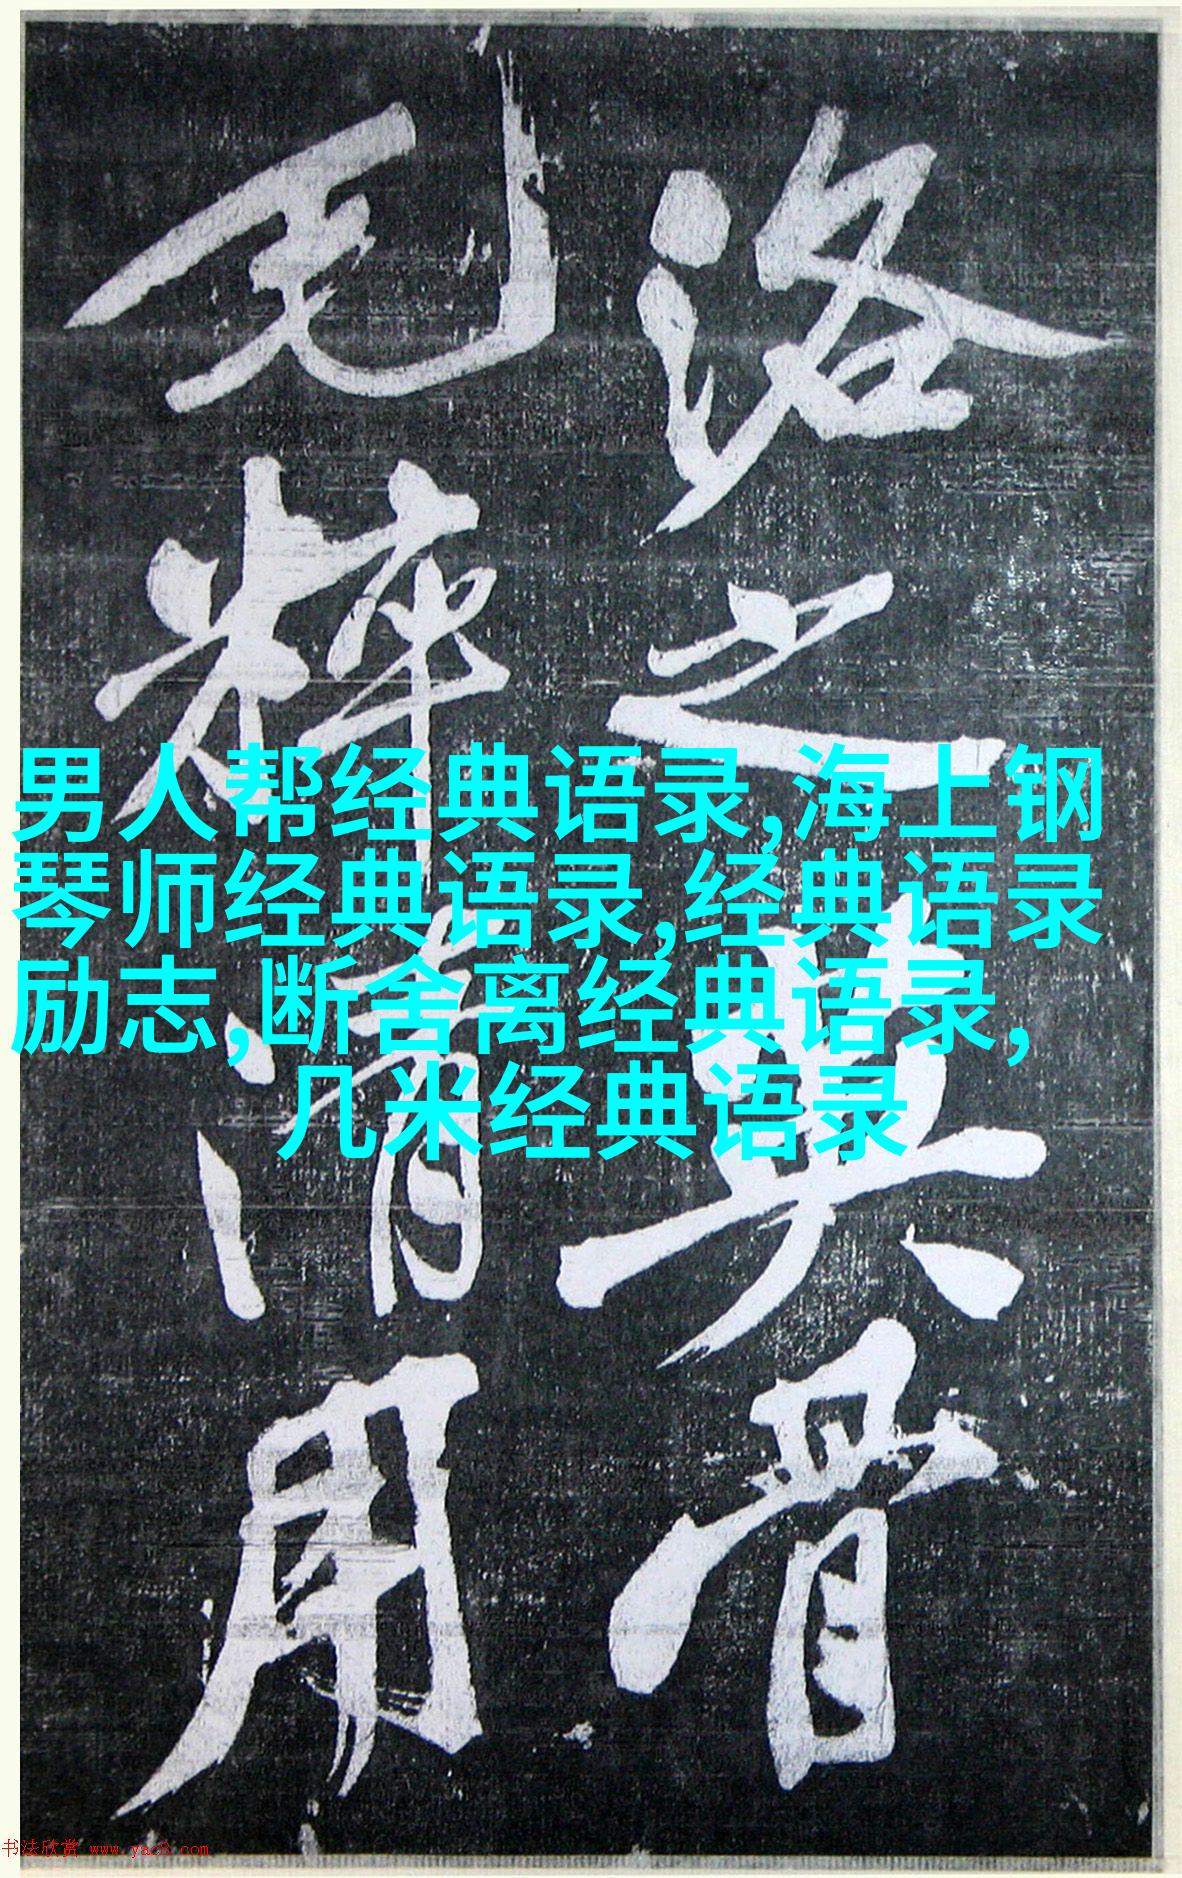 洛之骨
毛粹清用
男人帮经典语录,海上钢
琴师经典语录,经典语录
励志,断舍离经典语录,
几米经典语录
书法欣赏 www.yac8.com